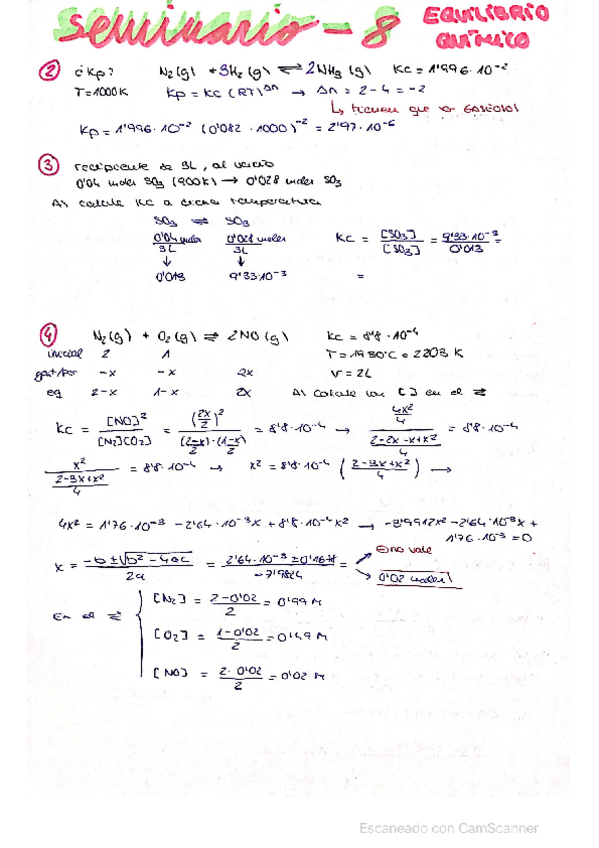 seminario - 8 EQUILIBRIO QUÍMICO
② ¿Kp? N₂(g) + 3H₂(g) ⇌ 2NH₃(g) Kc = 1'996·10⁻²
T = 1000K Kp = Kc (RT)^Δn → Δn = 2 - 4 = -2
↳ tienen que ser GASEOSOS
Kp = 1'996·10⁻² (0'082·1000)⁻² = 2'97·10⁻⁶
③ recipiente de 3L, al vacío
0'04 moles SO₃ (900K) → 0'028 moles SO₃
A) calcule Kc a dicha temperatura
SO₃ ⇌ SO₃
0'04 moles / 3L 0'028 moles / 3L Kc = [SO₃] / [SO₃] = 9'33·10⁻³ / 0'013 =
↓ ↓
0'013 9'33·10⁻³ =
④ N₂(g) + O₂(g) ⇌ 2NO(g) Kc = 8'8·10⁻⁴
inicial 2 1 T = 1930°C = 2203 K
gast/for -x -x 2x V = 2L
eq 2-x 1-x 2x A) calcule las [ ] en el ⇌
Kc = [NO]² / [N₂][O₂] = (2x/2)² / ((2-x)/2 · (1-x)/2) = 8'8·10⁻⁴ → (4x²/4) / ((2-2x-x+x²)/4) = 8'8·10⁻⁴
x² / ((2-3x+x²)/4) = 8'8·10⁻⁴ → x² = 8'8·10⁻⁴ ((2-3x+x²)/4) →
4x² = 1'76·10⁻³ - 2'64·10⁻³x + 8'8·10⁻⁴x² → -3'9912x² - 2'64·10⁻³x +
1'76·10⁻³ = 0
x = (-b ± √(b² - 4ac)) / 2a = (2'64·10⁻³ ± 0'1678) / -7'9824 = ⊖ no vale
0'02 moles
En el ⇌ [N₂] = (2-0'02)/2 = 0'99 M
[O₂] = (1-0'02)/2 = 0'49 M
[NO] = (2·0'02)/2 = 0'02 M
Escaneado con CamScanner